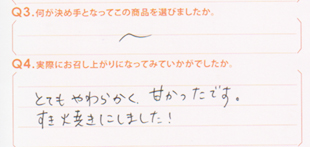 Q3.何が決め手となってこの商品を選びましたか。
〜
Q4.実際にお召し上がりになってみていかがでしたか。
とてもやわらかく、甘かったです。
すき焼きにしました!